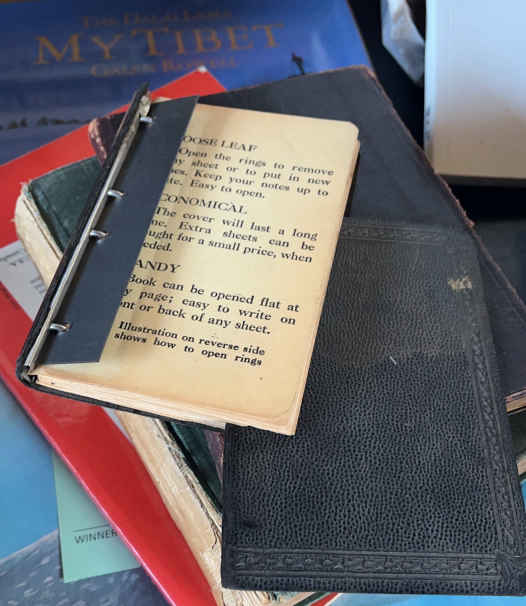 THE DALAI LAMA
MY TIBET
GALEN ROWELL
OOSE LEAF
Open the rings to remove
ny sheet or to put in new
nes. Keep your notes up to
te. Easy to open.
CONOMICAL
The cover will last a long
me. Extra sheets can be
ught for a small price, when
eeded.
ANDY
Book can be opened flat at
y page; easy to write on
ont or back of any sheet.
Illustration on reverse side
shows how to open rings
WINNER